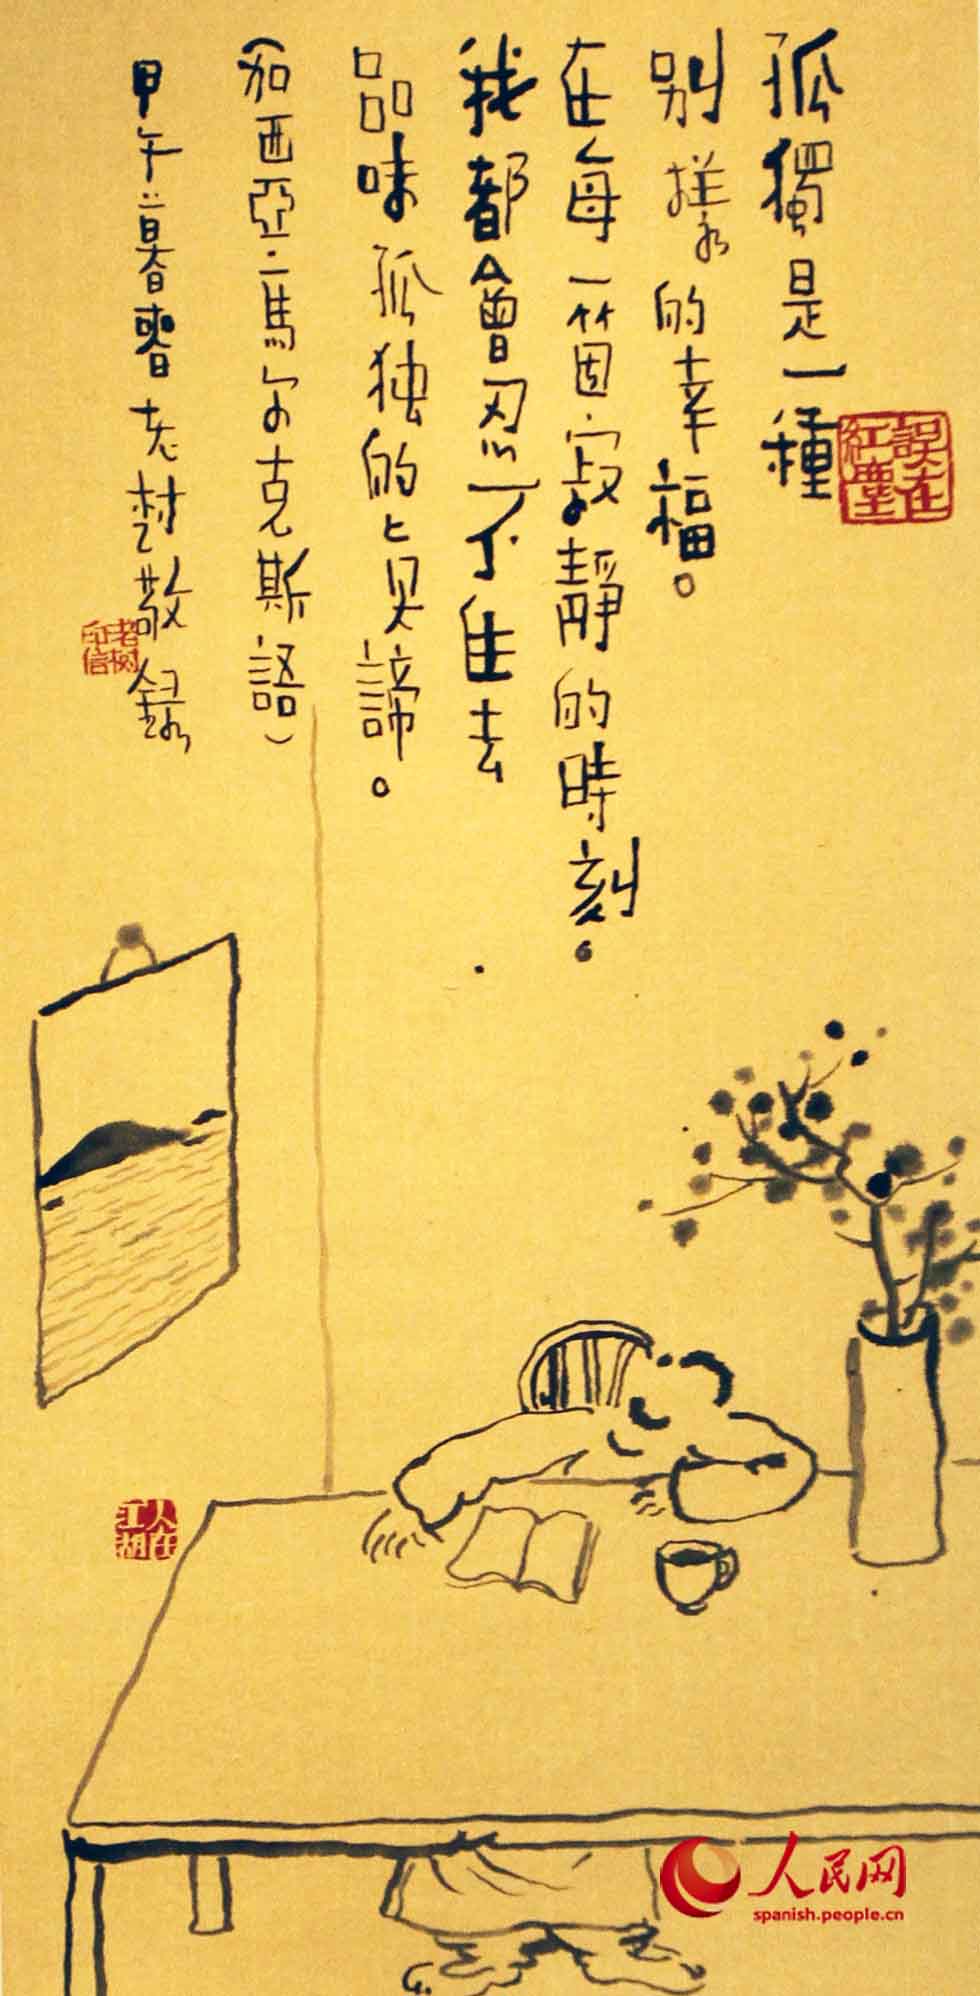 孤獨是一種
别樣的幸福。
在每一箇寂靜的時刻。
我都會忍不住去
品味孤独的真諦。
(加西亞·馬尔克斯語)
甲午暮春老树敬録
誤在
紅塵
老树
印信
人在
江湖
人民网
spanish.people.cn